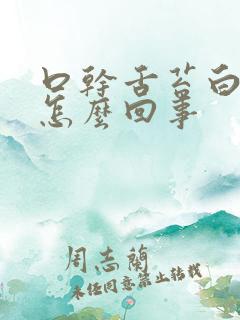 口幹舌苔白
怎麼回事
周志蘭
未經同意禁止轉載